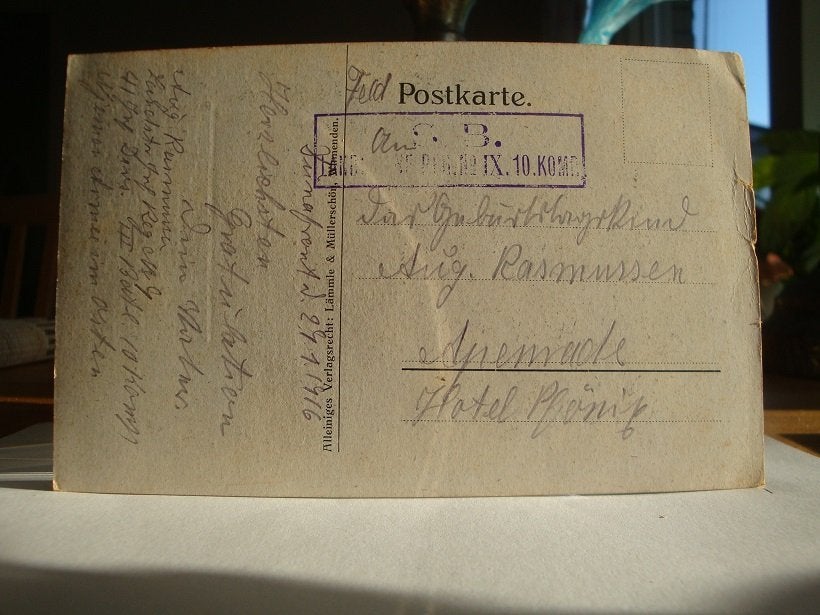 Feld Postkarte.
S. B.
IX. 10. KOMP.
An
das Geburtstagskind
Aug. Rasmussen
Apenrade
Hotel Phönix
Alleiniges Verlagsrecht: Lämmle & Müllerschön, Winnenden.
d. 29.1.1916
Herzlichsten
Gratulation
Dein Vater.
Aug Rasmussen
10 Komp
im Osten